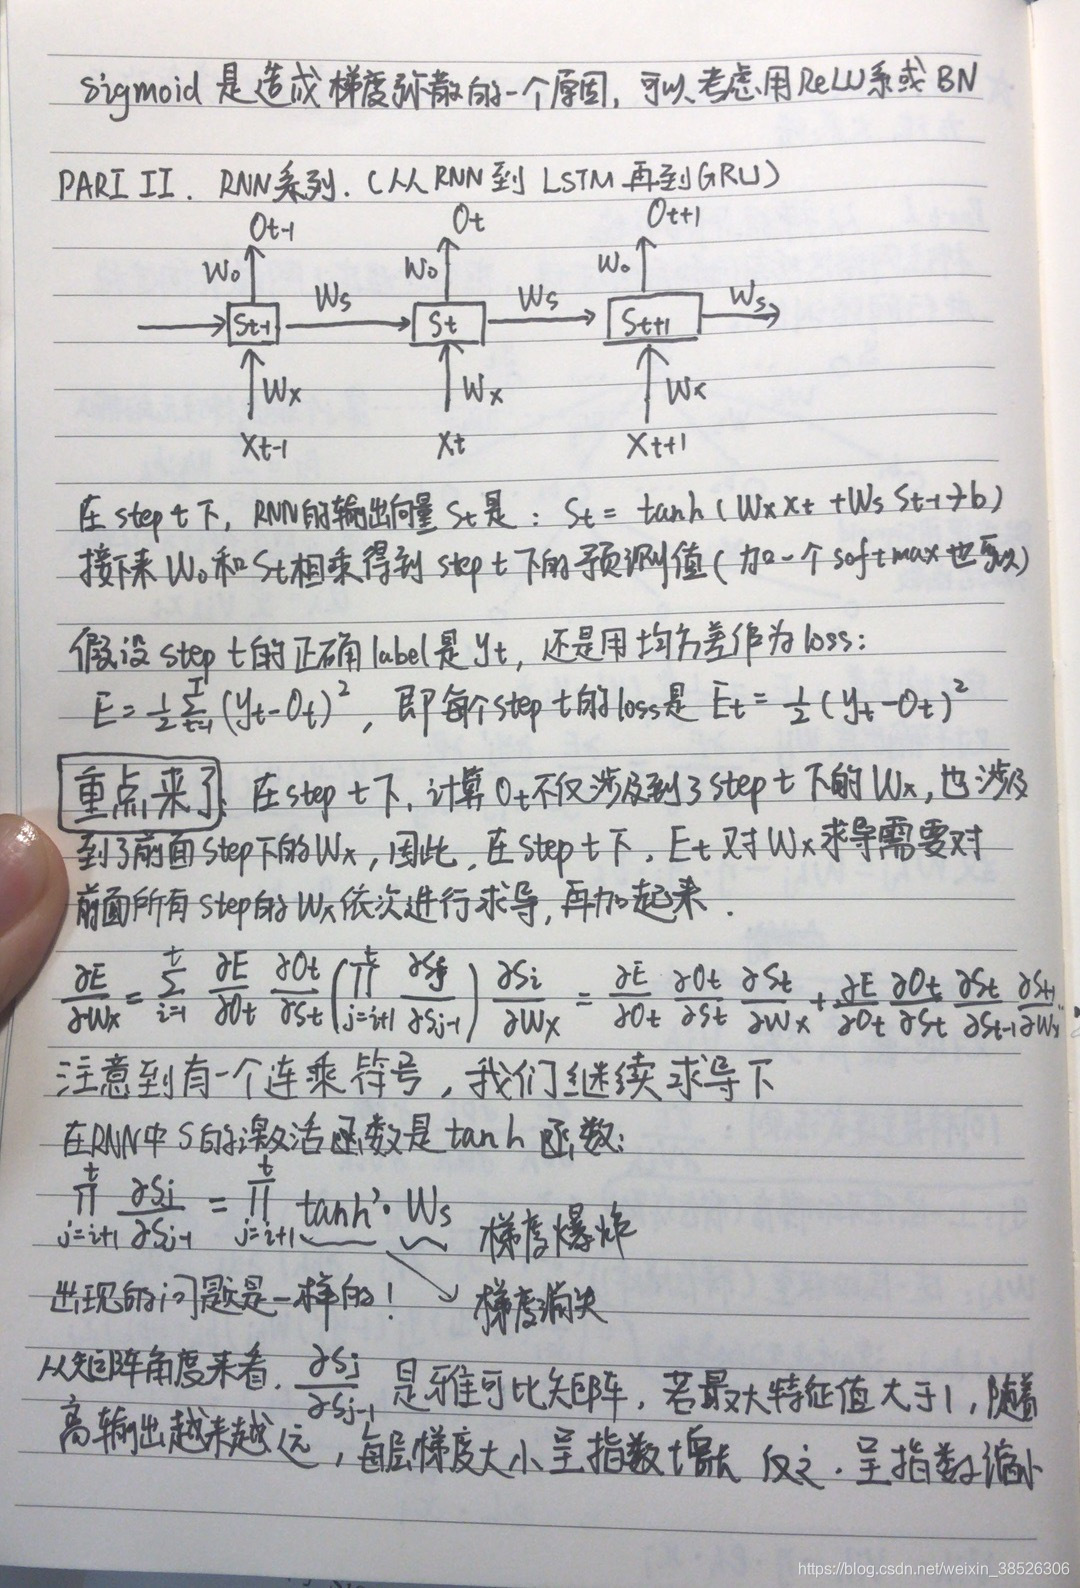 sigmoid 是造成梯度弥散的一个原因，可以考虑用ReLU系或BN
PART II. RNN系列.（从RNN到LSTM再到GRU）
Ot-1 Ot Ot+1
Wo Wo Wo
Ws Ws Ws
St-1 St St+1
Wx Wx Wx
Xt-1 Xt Xt+1
在step t下，RNN的输出向量St是：St = tanh(WxXt+WsSt-1+b)
接下来Wo和St相乘得到step t下的预测值（加一个softmax也可以）
假设step t的正确label是yt，还是用均方差作为loss：
E=½∑_{t=1}^{T}(yt-Ot)²，即每个step t的loss是 Et=½(yt-Ot)²
重点来了，在step t下，计算Ot不仅涉及到了step t下的Wx，也涉及
到了前面step下的Wx，因此，在step t下，Et对Wx求导需要对
前面所有step的Wx依次进行求导，再加起来.
∂E/∂Wx = ∑_{i=1}^{t} ∂E/∂Ot ∂Ot/∂St (∏_{j=i+1}^{t} ∂Sj/∂Sj-1) ∂Si/∂Wx = ∂E/∂Ot ∂Ot/∂St ∂St/∂Wx + ∂E/∂Ot ∂Ot/∂St ∂St/∂St-1 ∂St-1/∂Wx ...
注意到有一个连乘符号，我们继续求导下
在RNN中S的激活函数是tanh函数：
∏_{j=i+1}^{t} ∂Sj/∂Sj-1 = ∏_{j=i+1}^{t} tanh'·Ws 梯度爆炸
出现的问题是一样的！ 梯度消失
从矩阵角度来看，∂Sj/∂Sj-1 是雅可比矩阵，若最大特征值大于1，随着
离输出越来越远，每层梯度大小呈指数增长 反之，呈指数缩小
https://blog.csdn.net/weixin_38526306